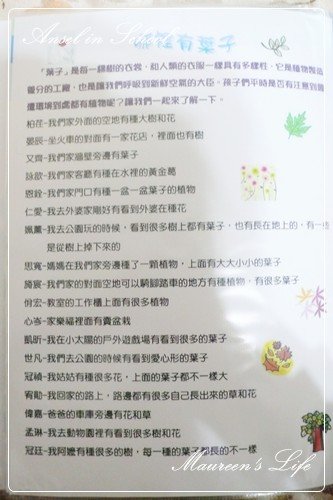 Angel in School
哪裡有葉子
「葉子」是每一棵樹的衣裳，和人類的衣服一樣具有多樣性，它是植物製造
養分的工廠，也是讓我們呼吸到新鮮空氣的大臣。孩子們平時是否有注意到周
遭環境到處都有植物呢？讓我們一起來了解一下。
柏荏-我們家外面的空地有種大樹和花
晏辰-坐火車的對面有一家花店，裡面也有樹
又齊-我們家牆壁旁邊有葉子
詠歆-我們家客廳有種在水裡的黃金葛
恩銓-我們家門口有種一盆一盆葉子的植物
仁愛-我去外婆家剛好有看到外婆在種花
姵薰-我去公園玩的時候，看到很多樹上都有葉子，也有長在地上的，有一些
是從樹上掉下來的
思寬-媽媽在我們家旁邊種了一顆植物，上面有大大小小的葉子
旖宸-我們家的對面空地可以騎腳踏車的地方有種植物，有很多葉子
佾宏-教室的工作櫃上面有很多植物
心岑-家樂福裡面有賣盆栽
凱昕-我在小太陽的戶外遊戲場有看到很多的葉子
世凡-我們去公園的時候有看到愛心形的葉子
冠禎-我姑姑有種很多花，上面的葉子都不一樣大
宥勳-我回家的路上，路邊都有很多自己長出來的草和花
偉嘉-爸爸的車庫旁邊有花和草
孟琳-我去動物園裡有看到很多樹和花
冠廷-我阿嬤有種很多的樹，每一種的葉子都長的不一樣
Maureen's Life